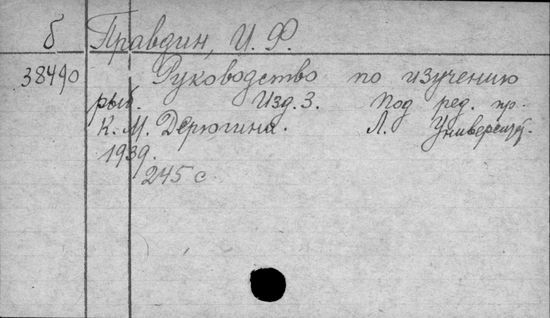 б Правдин, И. Ф.
38490 Руководство по изучению
рыб. Изд. 3. Под ред. пр.
К. М. Дерюгина. Л. Университ.
1939.
245 с.